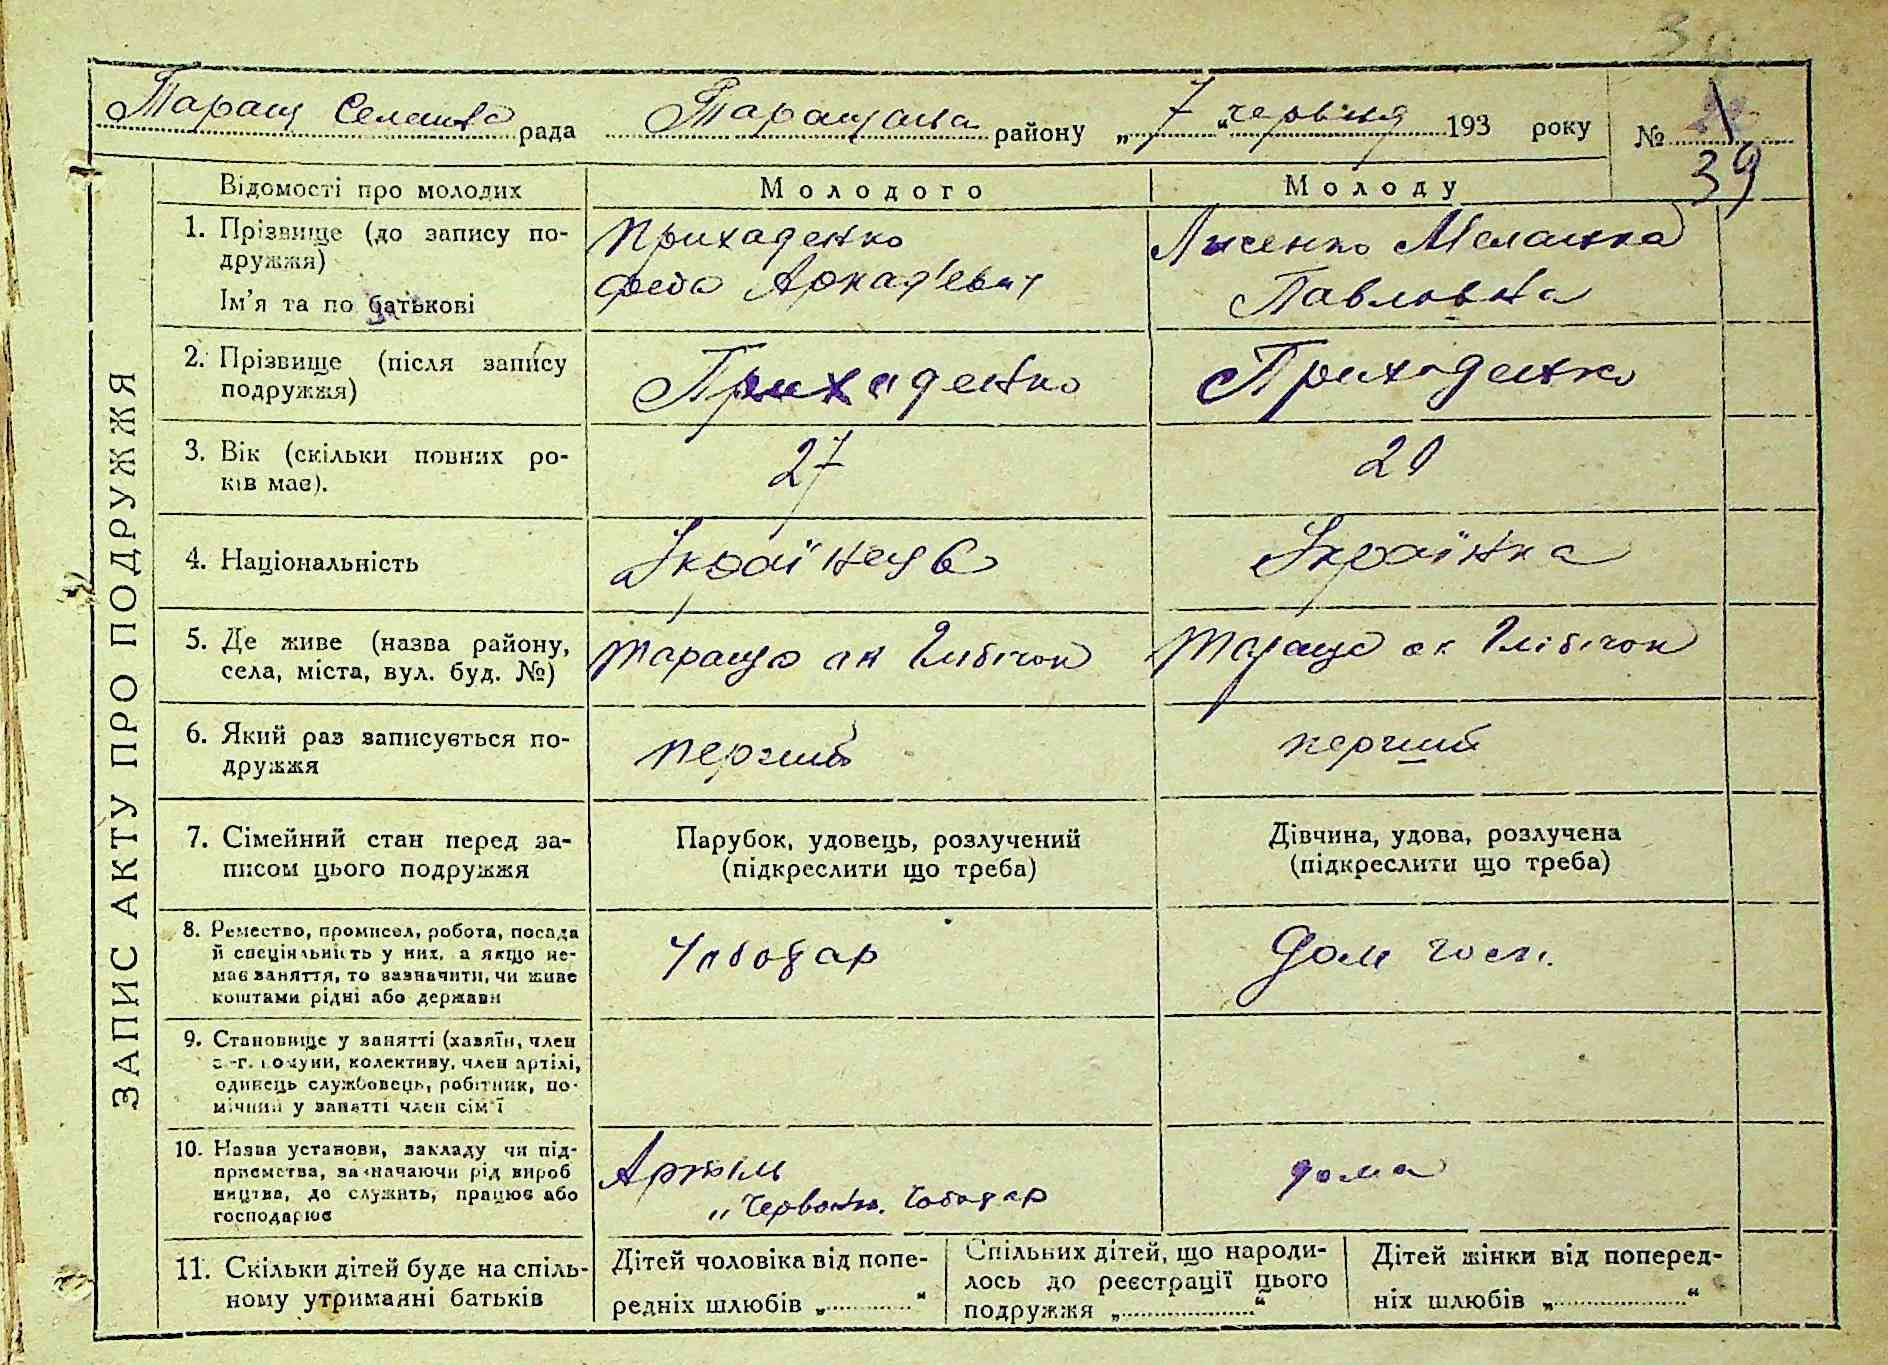 Таращ Селищна рада Таращанск району „ 7 " червіня 193 року №
39
ЗАПИС АКТУ ПРО ПОДРУЖЖЯ
Відомості про молодих Молодого Молоду
1. Прізвище (до запису по-
дружжя)
Ім'я та по батькові
Приходенко
Аркад'евич
Лисенко Меланка
Павловна
2. Прізвище (після запису
подружжя)
Приходенко
Приходенко
3. Вік (скільки повних ро-
ків має).
27
20
4. Національність
Українець
Українка
5. Де живе (назва району,
села, міста, вул. буд. №)
Тараща Глібічок
Тараща Глібічок
6. Який раз записується по-
дружжя
перший
перший
7. Сімейний стан перед за-
писом цього подружжя
Парубок, удовець, розлучений
(підкреслити що треба)
Дівчина, удова, розлучена
(підкреслити що треба)
8. Ремество, промисел, робота, посада
й спеціяльність у них, а якщо не-
має заняття, то зазначити, чи живе
коштами рідні або держави
Чоботар
Дом госп.
9. Становище у занятті (хазяїн, член
с.-г. комуни, колективу, член артілі,
одинець службовець, робітник, по-
мічний у занятті член сім'ї
10. Назва установи, закладу чи під-
приємства, зазначаючи рід вироб
ництва, де служить, працює або
господарює
Артіль
„Червон. Чоботар
дома
11. Скільки дітей буде на спіль-
ному утриманні батьків
Дітей чоловіка від попе-
редніх шлюбів „ "
Спільних дітей, що народи-
лось до реєстрації цього
подружжя „ "
Дітей жінки від поперед-
ніх шлюбів „ "